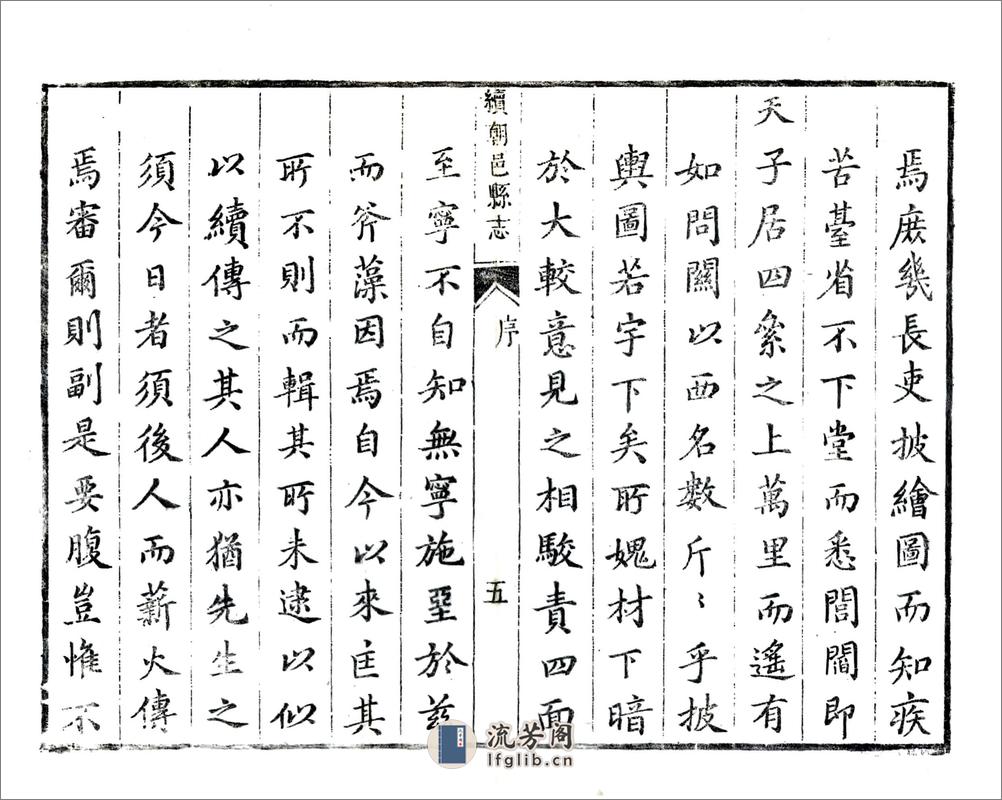 焉庶幾長吏披繪圖而知疾
苦臺省不下堂而悉誾閽即
天子居四絫之上萬里而遙有
如問關以西名數斤〻乎披
輿圖若宇下矣所媿材下暗
於大較意見之相駮責四面
續朝邑縣志
序
五
至寧不自知無寧施堊於茲
而斧藻因焉自今以來匡其
所不則而輯其所未逮以似
以續傳之其人亦猶先生之
須今日者須後人而薪火傳
焉審爾則副是要腹豈惟不
流芳阁
lfglib.cn